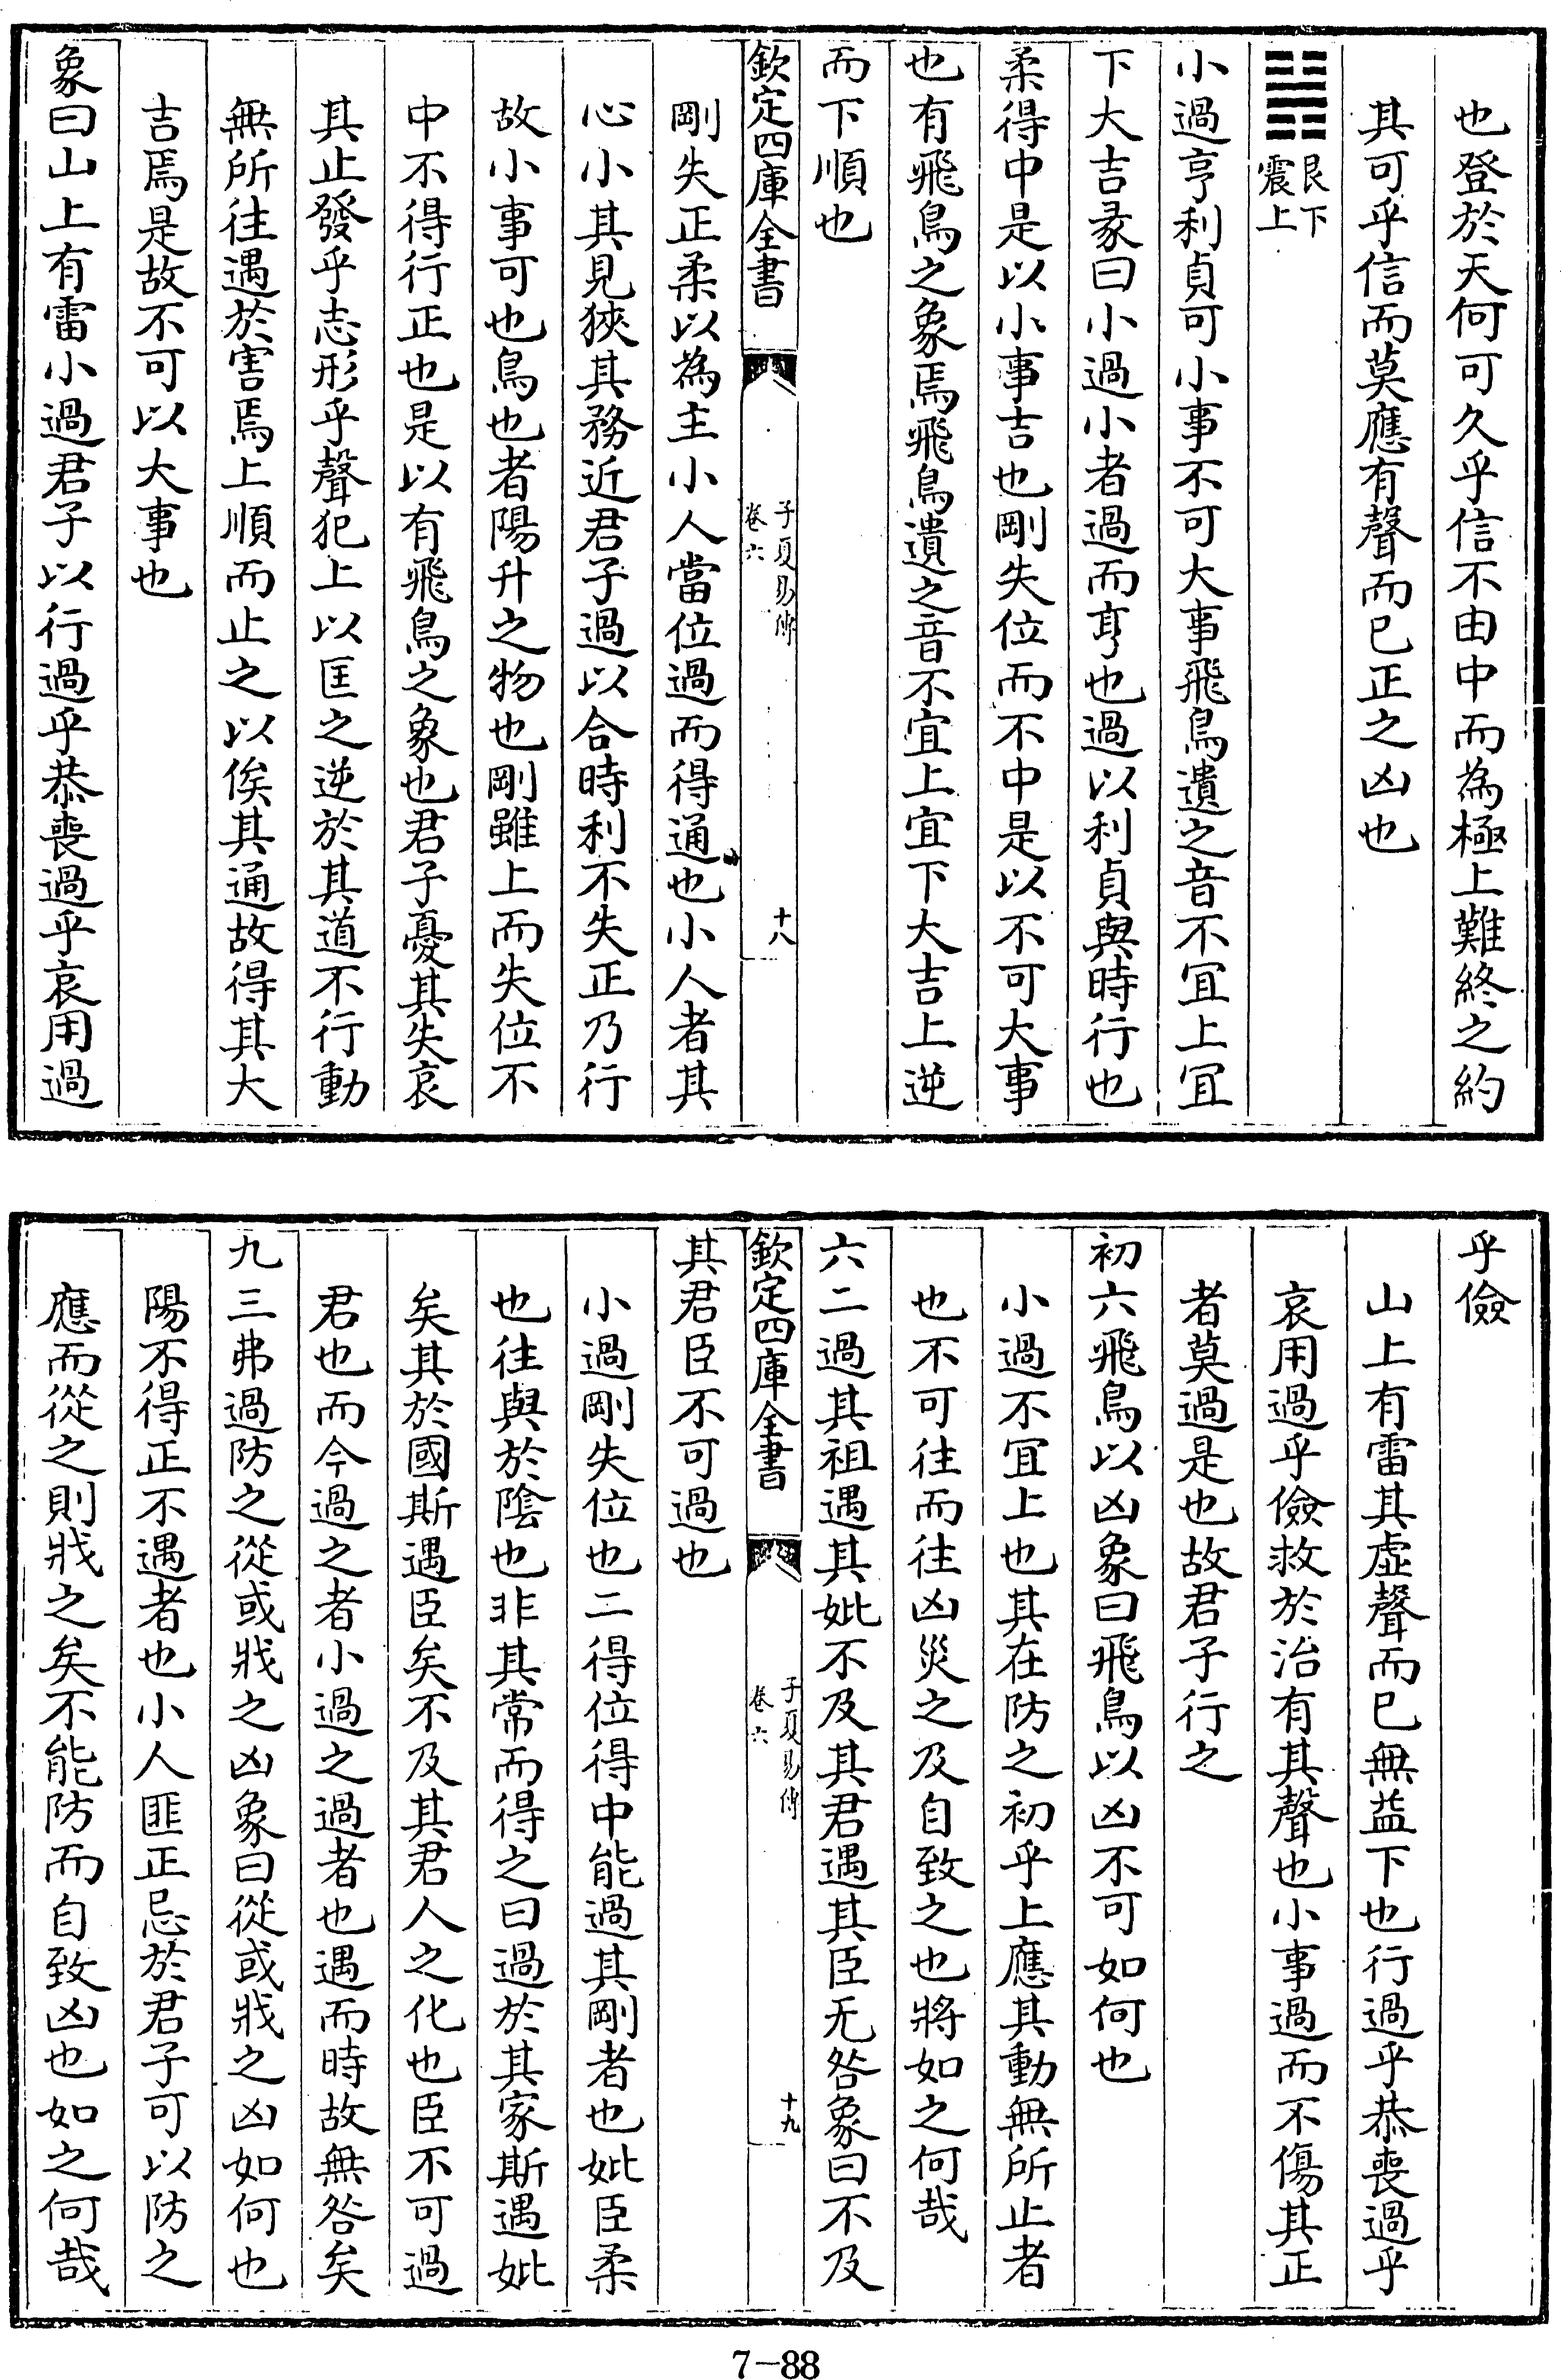 也登於天何可久乎信不由中而為極上難終之約
其可乎信而莫應有聲而已正之凶也
䷽艮下
震上
小過亨利貞可小事不可大事飛鳥遺之音不宜上宜
下大吉彖曰小過小者過而亨也過以利貞與時行也
柔得中是以小事吉也剛失位而不中是以不可大事
也有飛鳥之象焉飛鳥遺之音不宜上宜下大吉上逆
而下順也
欽定四庫全書
子夏易傳
卷六
十八
剛失正柔以為主小人當位過而得通也小人者其
心小其見狹其務近君子過以合時利不失正乃行
故小事可也鳥也者陽升之物也剛雖上而失位不
中不得行正也是以有飛鳥之象也君子憂其失哀
其止發乎志形乎聲犯上以匡之逆於其道不行動
無所往遇於害焉上順而止之以俟其通故得其大
吉焉是故不可以大事也
象曰山上有雷小過君子以行過乎恭喪過乎哀用過
乎儉
山上有雷其虛聲而已無益下也行過乎恭喪過乎
哀用過乎儉救於治有其聲也小事過而不傷其正
者莫過是也故君子行之
初六飛鳥以凶象曰飛鳥以凶不可如何也
小過不宜上也其在防之初乎上應其動無所止者
也不可往而往凶災之及自致之也將如之何哉
六二過其祖遇其妣不及其君遇其臣无咎象曰不及
欽定四庫全書
子夏易傳
卷六
十九
其君臣不可過也
小過剛失位也二得位得中能過其剛者也妣臣柔
也往與於陰也非其常而得之曰過於其家斯遇妣
矣其於國斯遇臣矣不及其君人之化也臣不可過
君也而今過之者小過之過者也遇而時故無咎矣
九三弗過防之從或戕之凶象曰從或戕之凶如何也
陽不得正不遇者也小人匪正忌於君子可以防之
應而從之則戕之矣不能防而自致凶也如之何哉
7-88